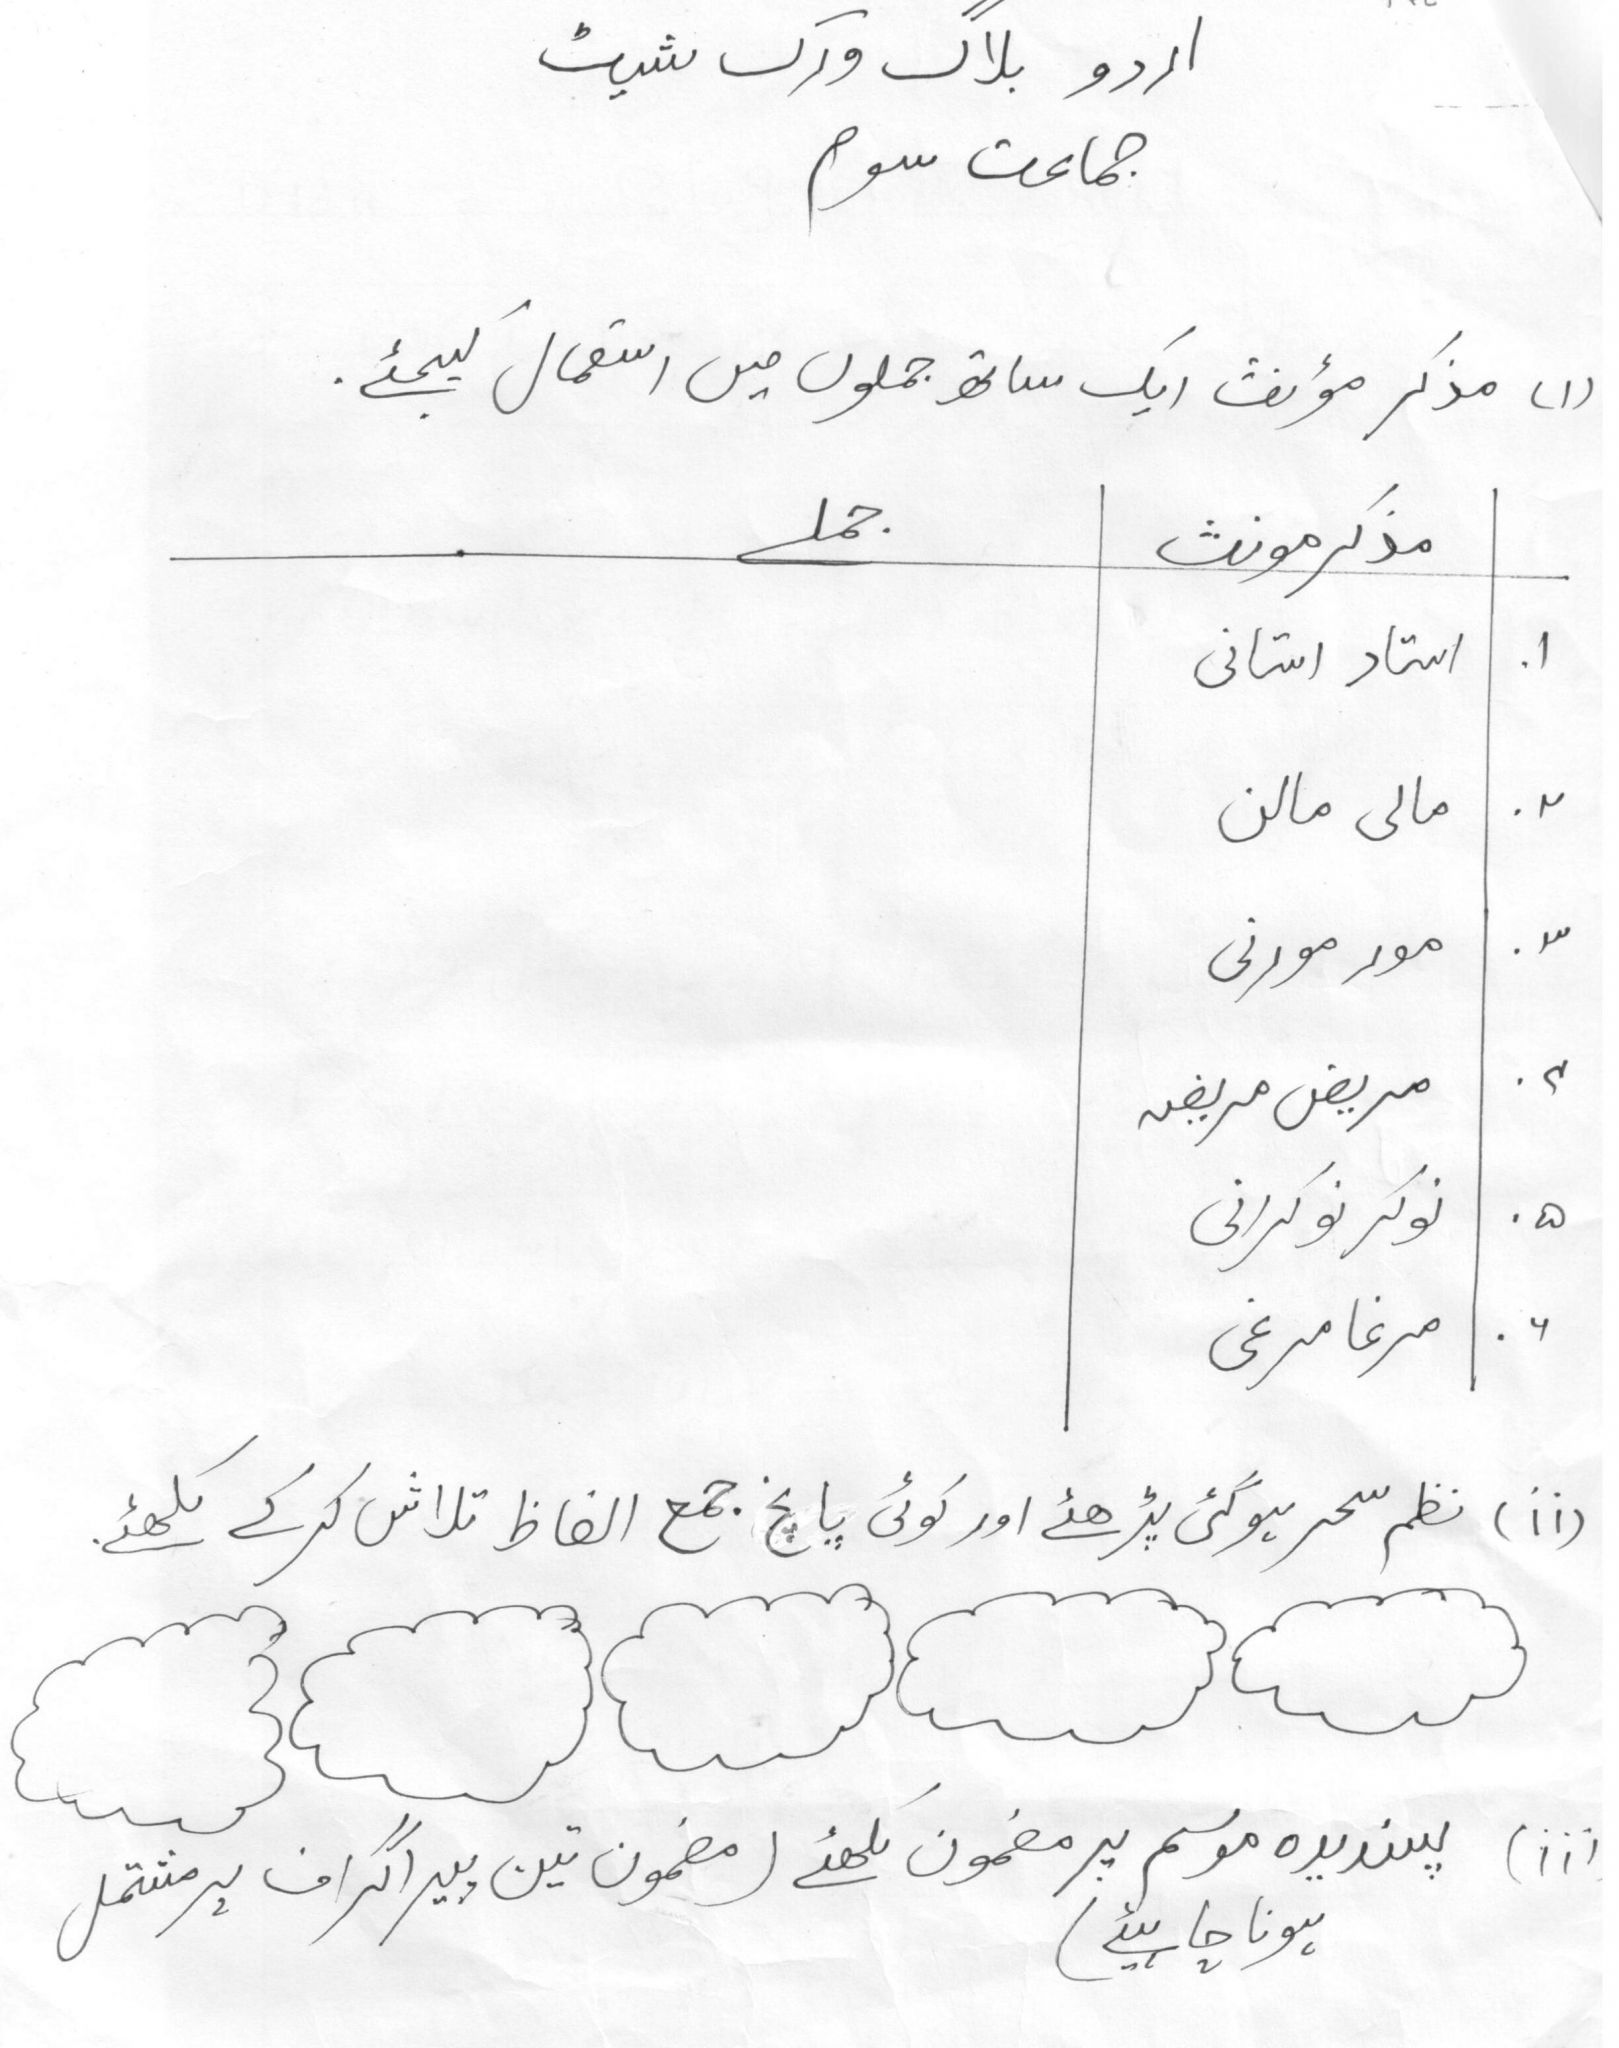 اردو بلاگ ورک شیٹ
جماعت سوم
(i) مذکر مؤنث ایک ساتھ جملوں میں استعمال کیجئے.
مذکر مونث جملے
۱. استاد استانی
۲. مالی مالن
۳. مور مورنی
۴. مریض مریضہ
۵. نوکر نوکرانی
۶. مرغا مرغی
(ii) نظم سحر ہوگئی پڑھئے اور کوئی پانچ جمع الفاظ تلاش کرکے لکھئے.
(iii) پسندیدہ موسم پر مضمون لکھئے (مضمون تین پیراگراف پر مشتمل
ہونا چاہیئے)